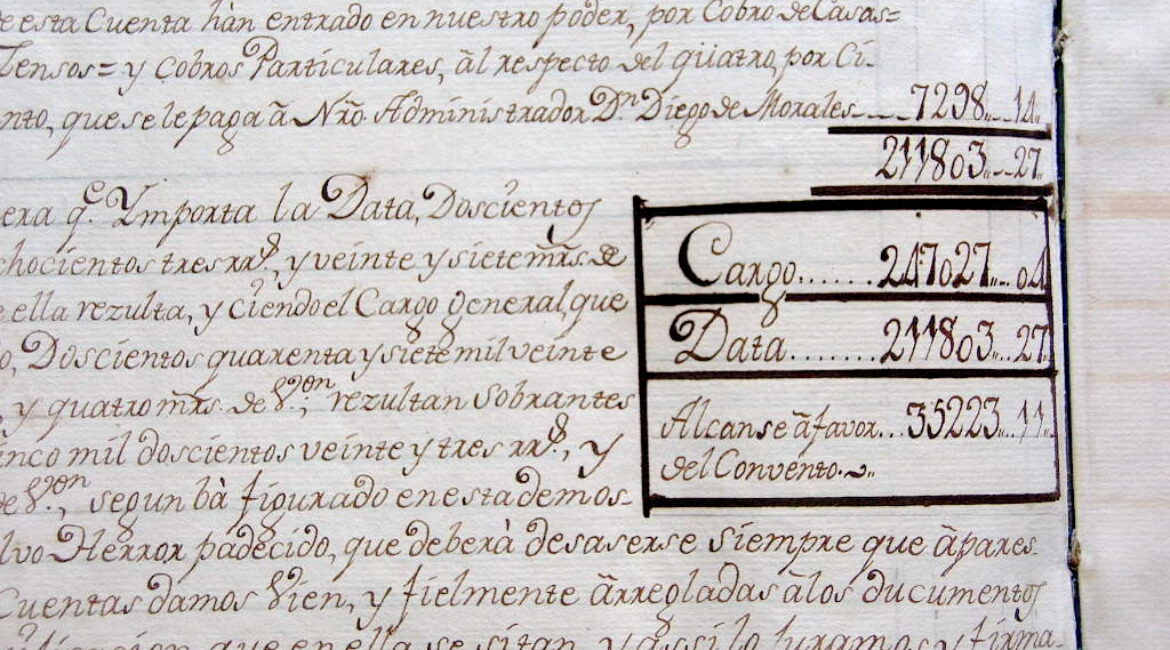 e esta Cuenta hàn entrado en nuestro poder, por Cobro de Casas=
Tensos= y Cobros Particulares, àl respecto del quatro, por Ci-
nto, que se le paga à Nrõ. Administrador Dⁿ. Diego de Morales 7298,,14,,
211803,,27,,
era q.ᵉ Ymporta la Data, Doscientos
chocientos tres rr.ˢ, y veinte y siete mrs. de
e ella rezulta, y ciendo el Cargo General, que
o, Doscientos quarenta y siete mil veinte
, y quatro mrs. de Vᵒⁿ., rezultan sobrantes
inco mil doscientos veinte y tres rr.ˢ, y
de Vᵒⁿ., segun bà figurado en esta demos-
lvo Herror padecido, que deberà desaserse siempre que àpares-
Cuentas damos Vien, y fielmente àrregladas àlos ducumentos
que en ella se sitan, y assi lo Juramos y firma-
Cargo......247027,,..04
Data.......211803,,..27,,
Alcanse à favor...35223,,..11,,
del Convento.